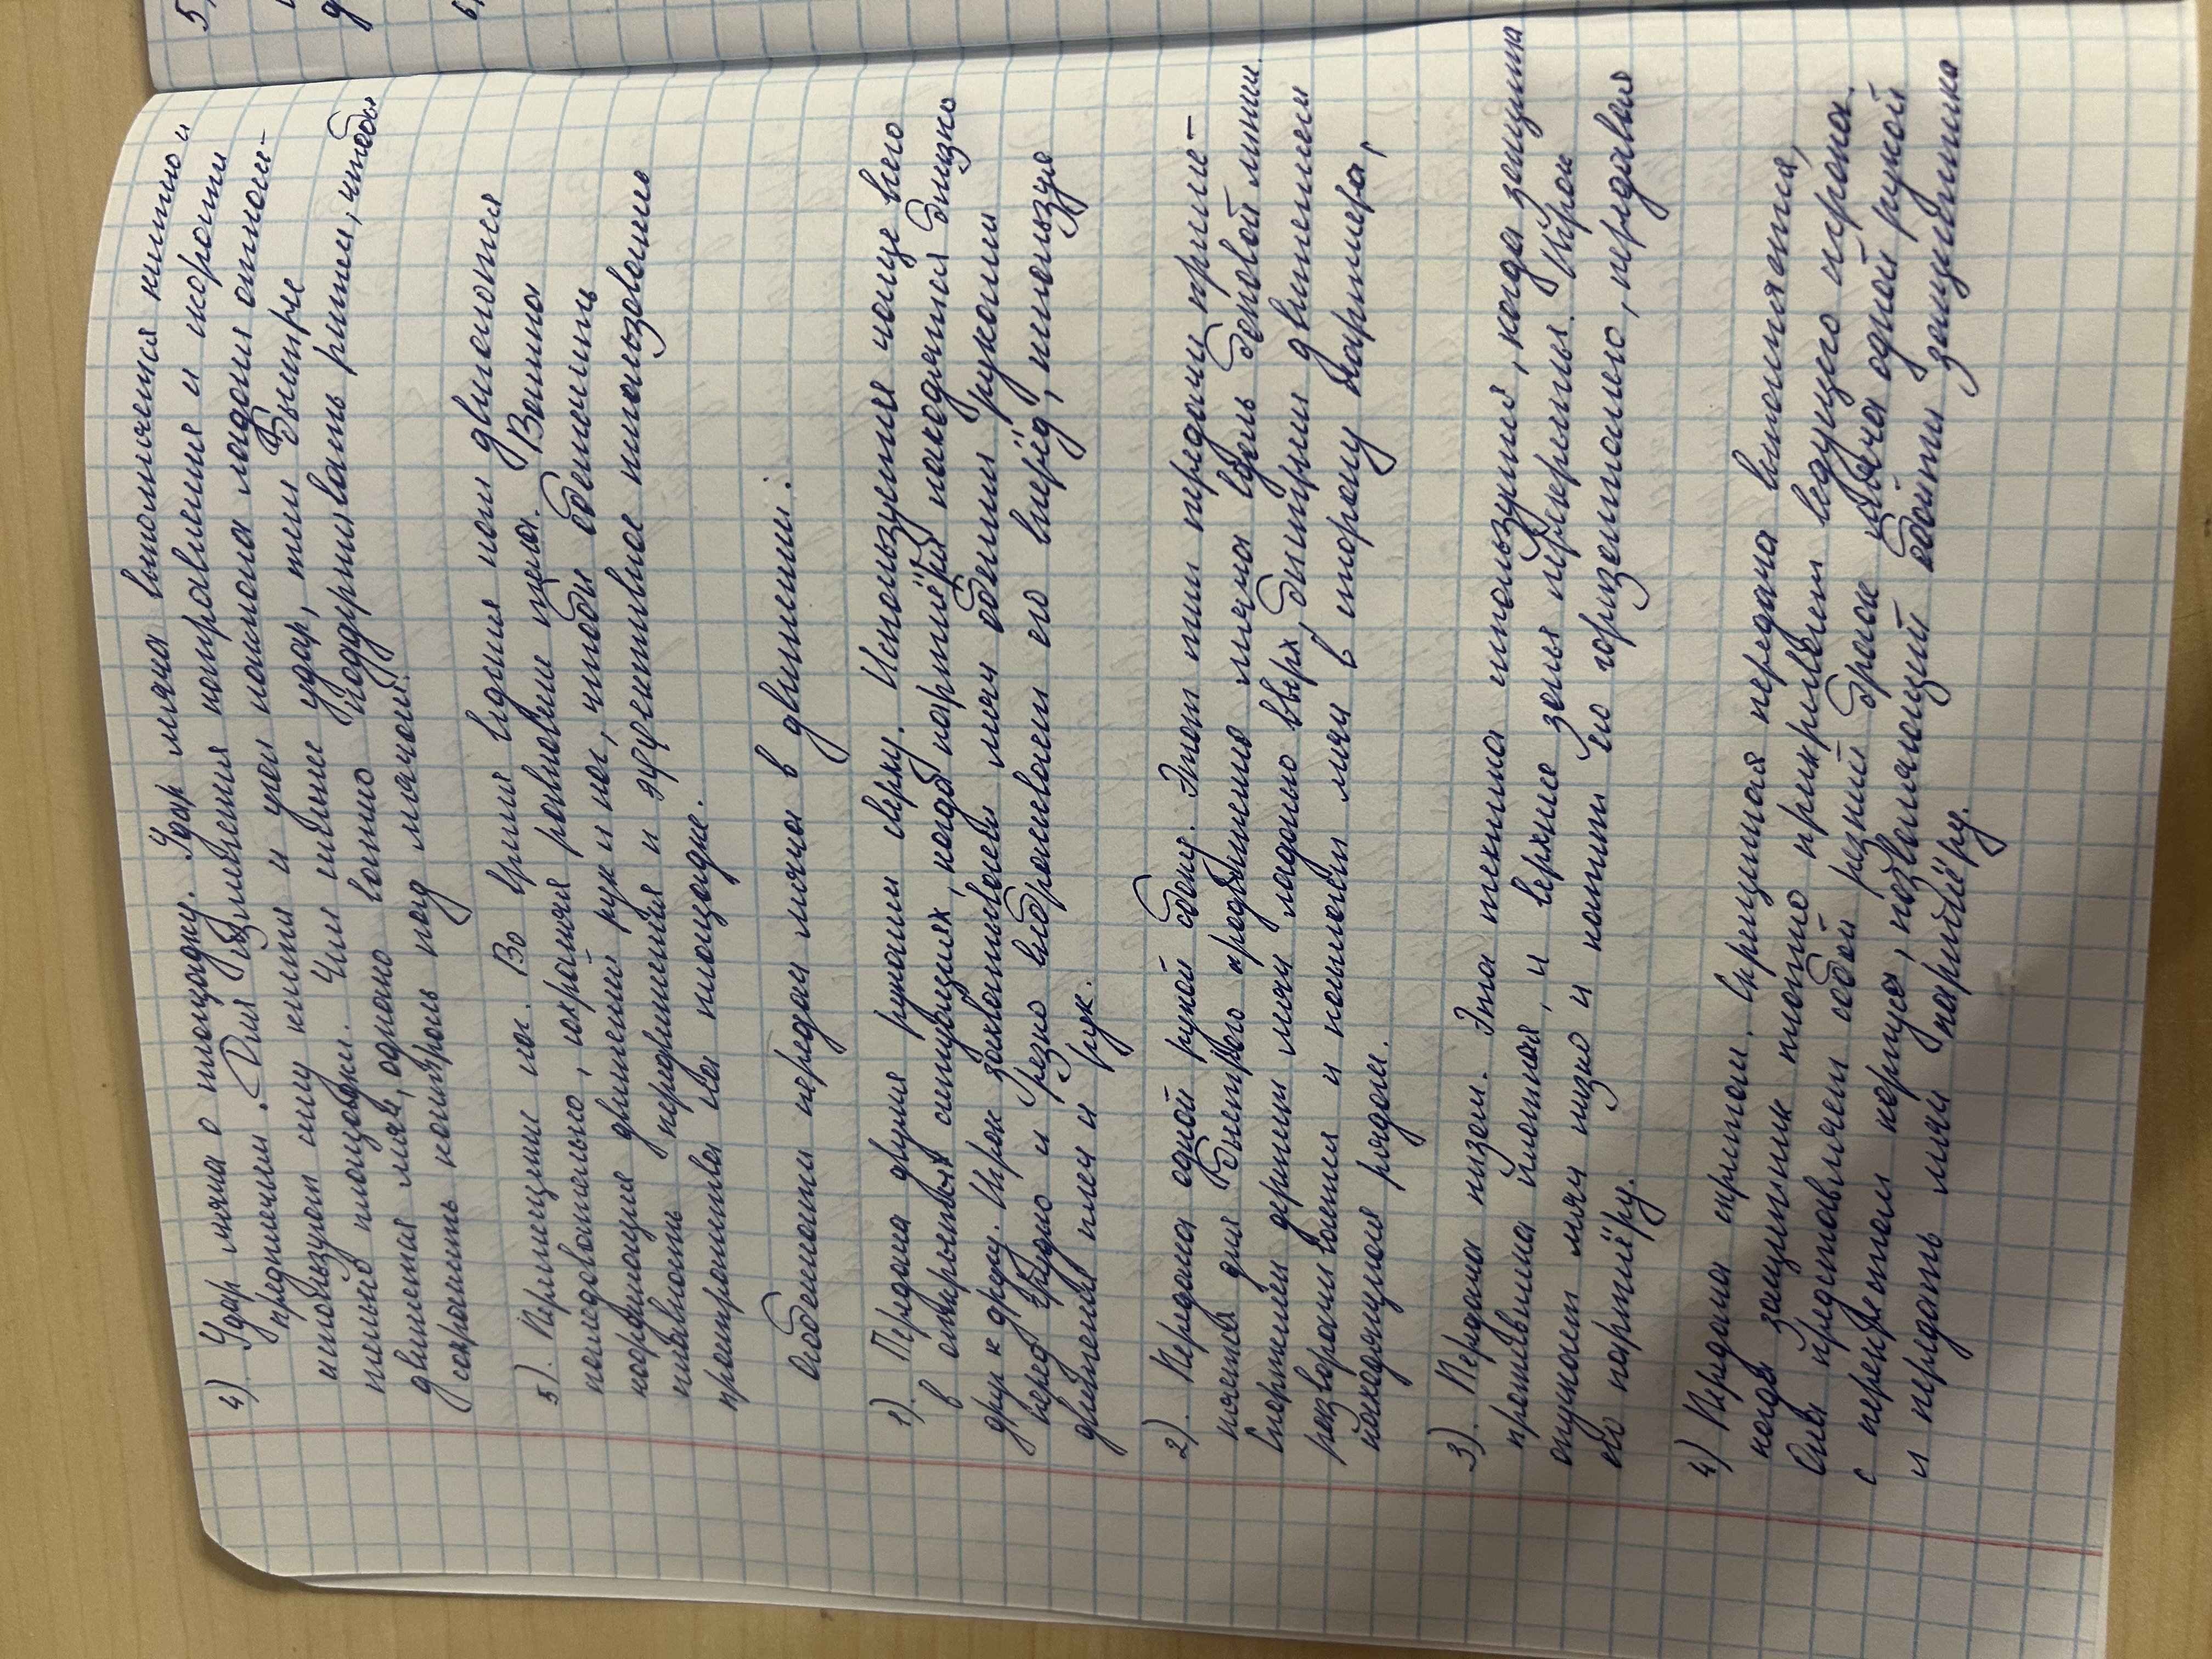 4) Удар мяча о площадку. Удар мяча выполняется кистью и
предплечьем. Для изменения направления и скорости
используют силу кисти и угол наклона ладони относи-
тельно площадки. Чем сильнее удар, тем быстрее
движется мяч, однако важно поддерживать ритм, чтобы
сохранить контроль над мячом.
5). Перемещение ног. Во время ведения ноги двигаются
последовательно, сохраняя равновесие тела. Важна
координация движений рук и ног, чтобы обеспечить
плавность передвижения и эффективное использование
пространства на площадке.
Особенности передач мяча в движении.
1). Передача двумя руками сверху. Используется чаще всего
в открытых ситуациях, когда партнёры находятся близко
друг к другу. Игрок захватывает мяч обеими руками
перед грудью и резко выбрасывает его вперёд, используя
движения плеч и рук.
2). Передача одной рукой сбоку. Этот тип передачи приме-
няется для быстрого продвижения мяча вдоль боковой линии.
Спортсмен держит мяч ладонью вверх, быстрым движением
разворачивается и посылает мяч в сторону партнера,
находящегося рядом.
3). Передача низом. Эта техника используется, когда защита
противника плотная, и верхние зоны перекрыты. Игрок
опускает мяч низко и катит его горизонтально, передавая
его партнёру.
4) Передача крюком. Крюковая передача выполняется,
когда защитник плотно прикрывает ведущего игрока.
Она представляет собой резкий бросок мяча одной рукой
с перекрестом корпуса, позволяющий обойти защитника
и передать мяч партнёру.